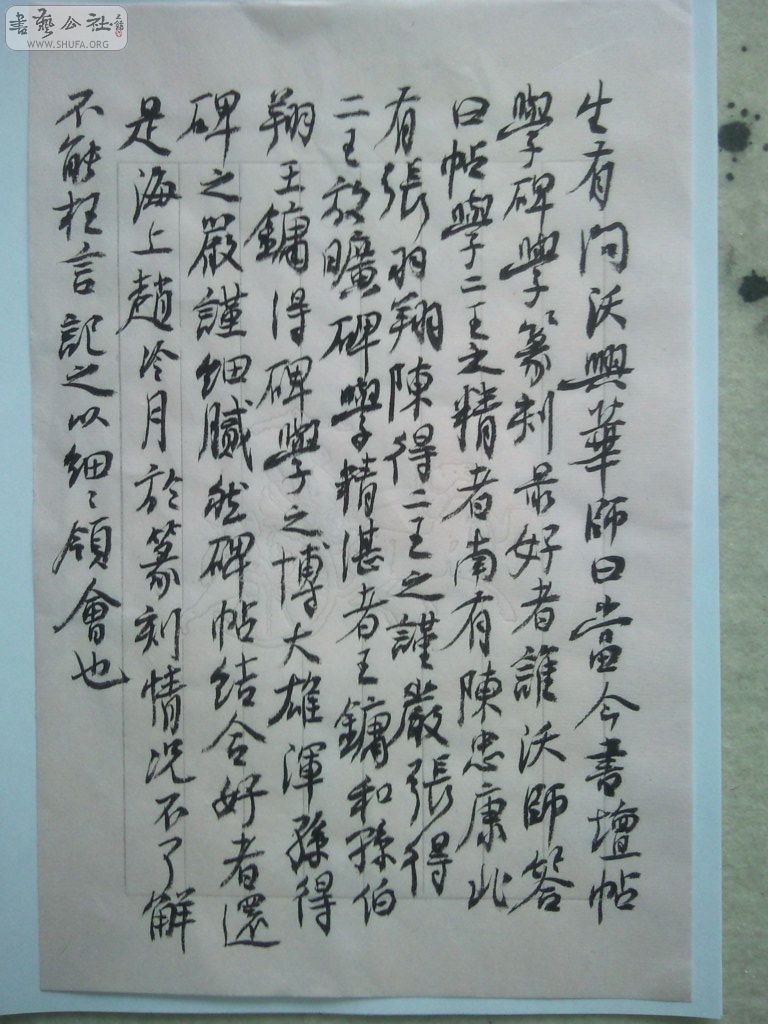 書藝公社
WWW.SHUFA.ORG
生有问沃興華師曰當今書壇帖
學碑學篆刻最好者誰沃師答
曰帖學二王之精者南有陳忠康北
有張羽翔陳得二王之謹嚴張得
二王放曠碑學精湛者王鏞和孫伯
翔王鏞得碑學之博大雄渾孫得
碑之嚴謹細膩然碑帖结合好者還
是海上趙冷月於篆刻情况不了解
不能枉言記之以细々領會也